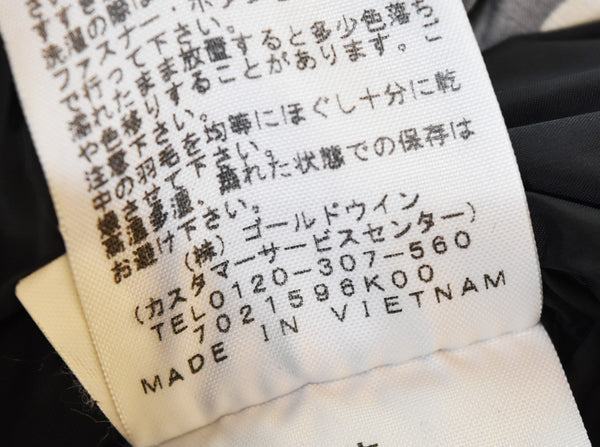 で行って下さい。
濡れたまま放置すると多少色落ち
や色移りすることがあります。ご
注意下さい。
中の羽毛を均等にほぐし十分に乾
燥させて下さい。
高温多湿、蒸れた状態での保存は
お避け下さい。
(株) ゴールドウイン
(カスタマーサービスセンター)
TEL0120-307-560
7021596K00
MADE IN VIETNAM